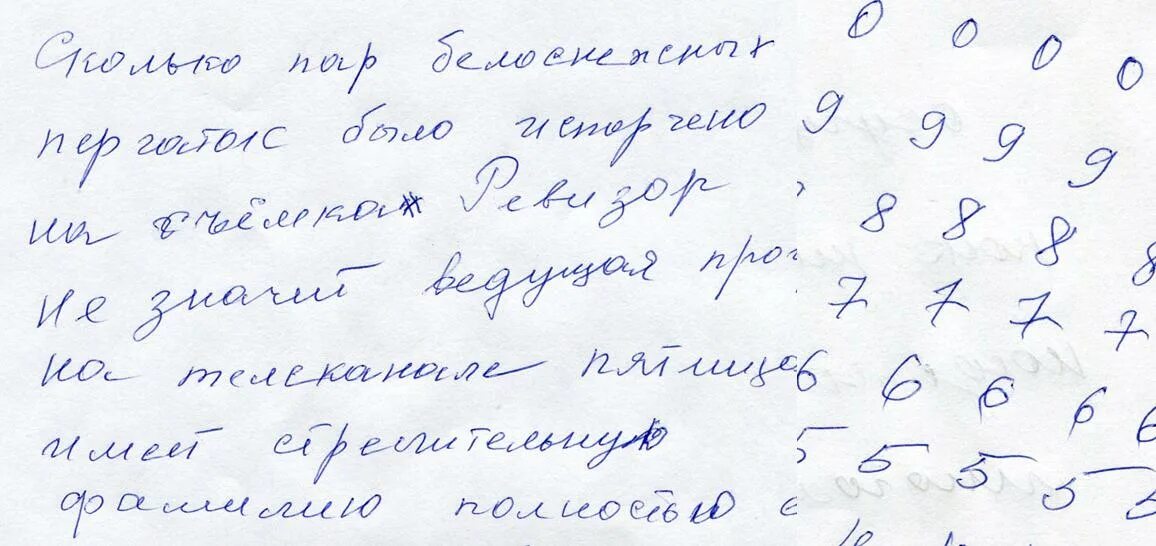 Сколько пар белоснежных
перчаток было испорчено
на съёмках Ревизор
не значит ведущая прог
на телеканале пятница
имеет стремительную
фамилию полностью с
0 0 0 0
9 9 9 9
8 8 8 8
7 7 7 7
6 6 6 6 6
5 5 5 5 5